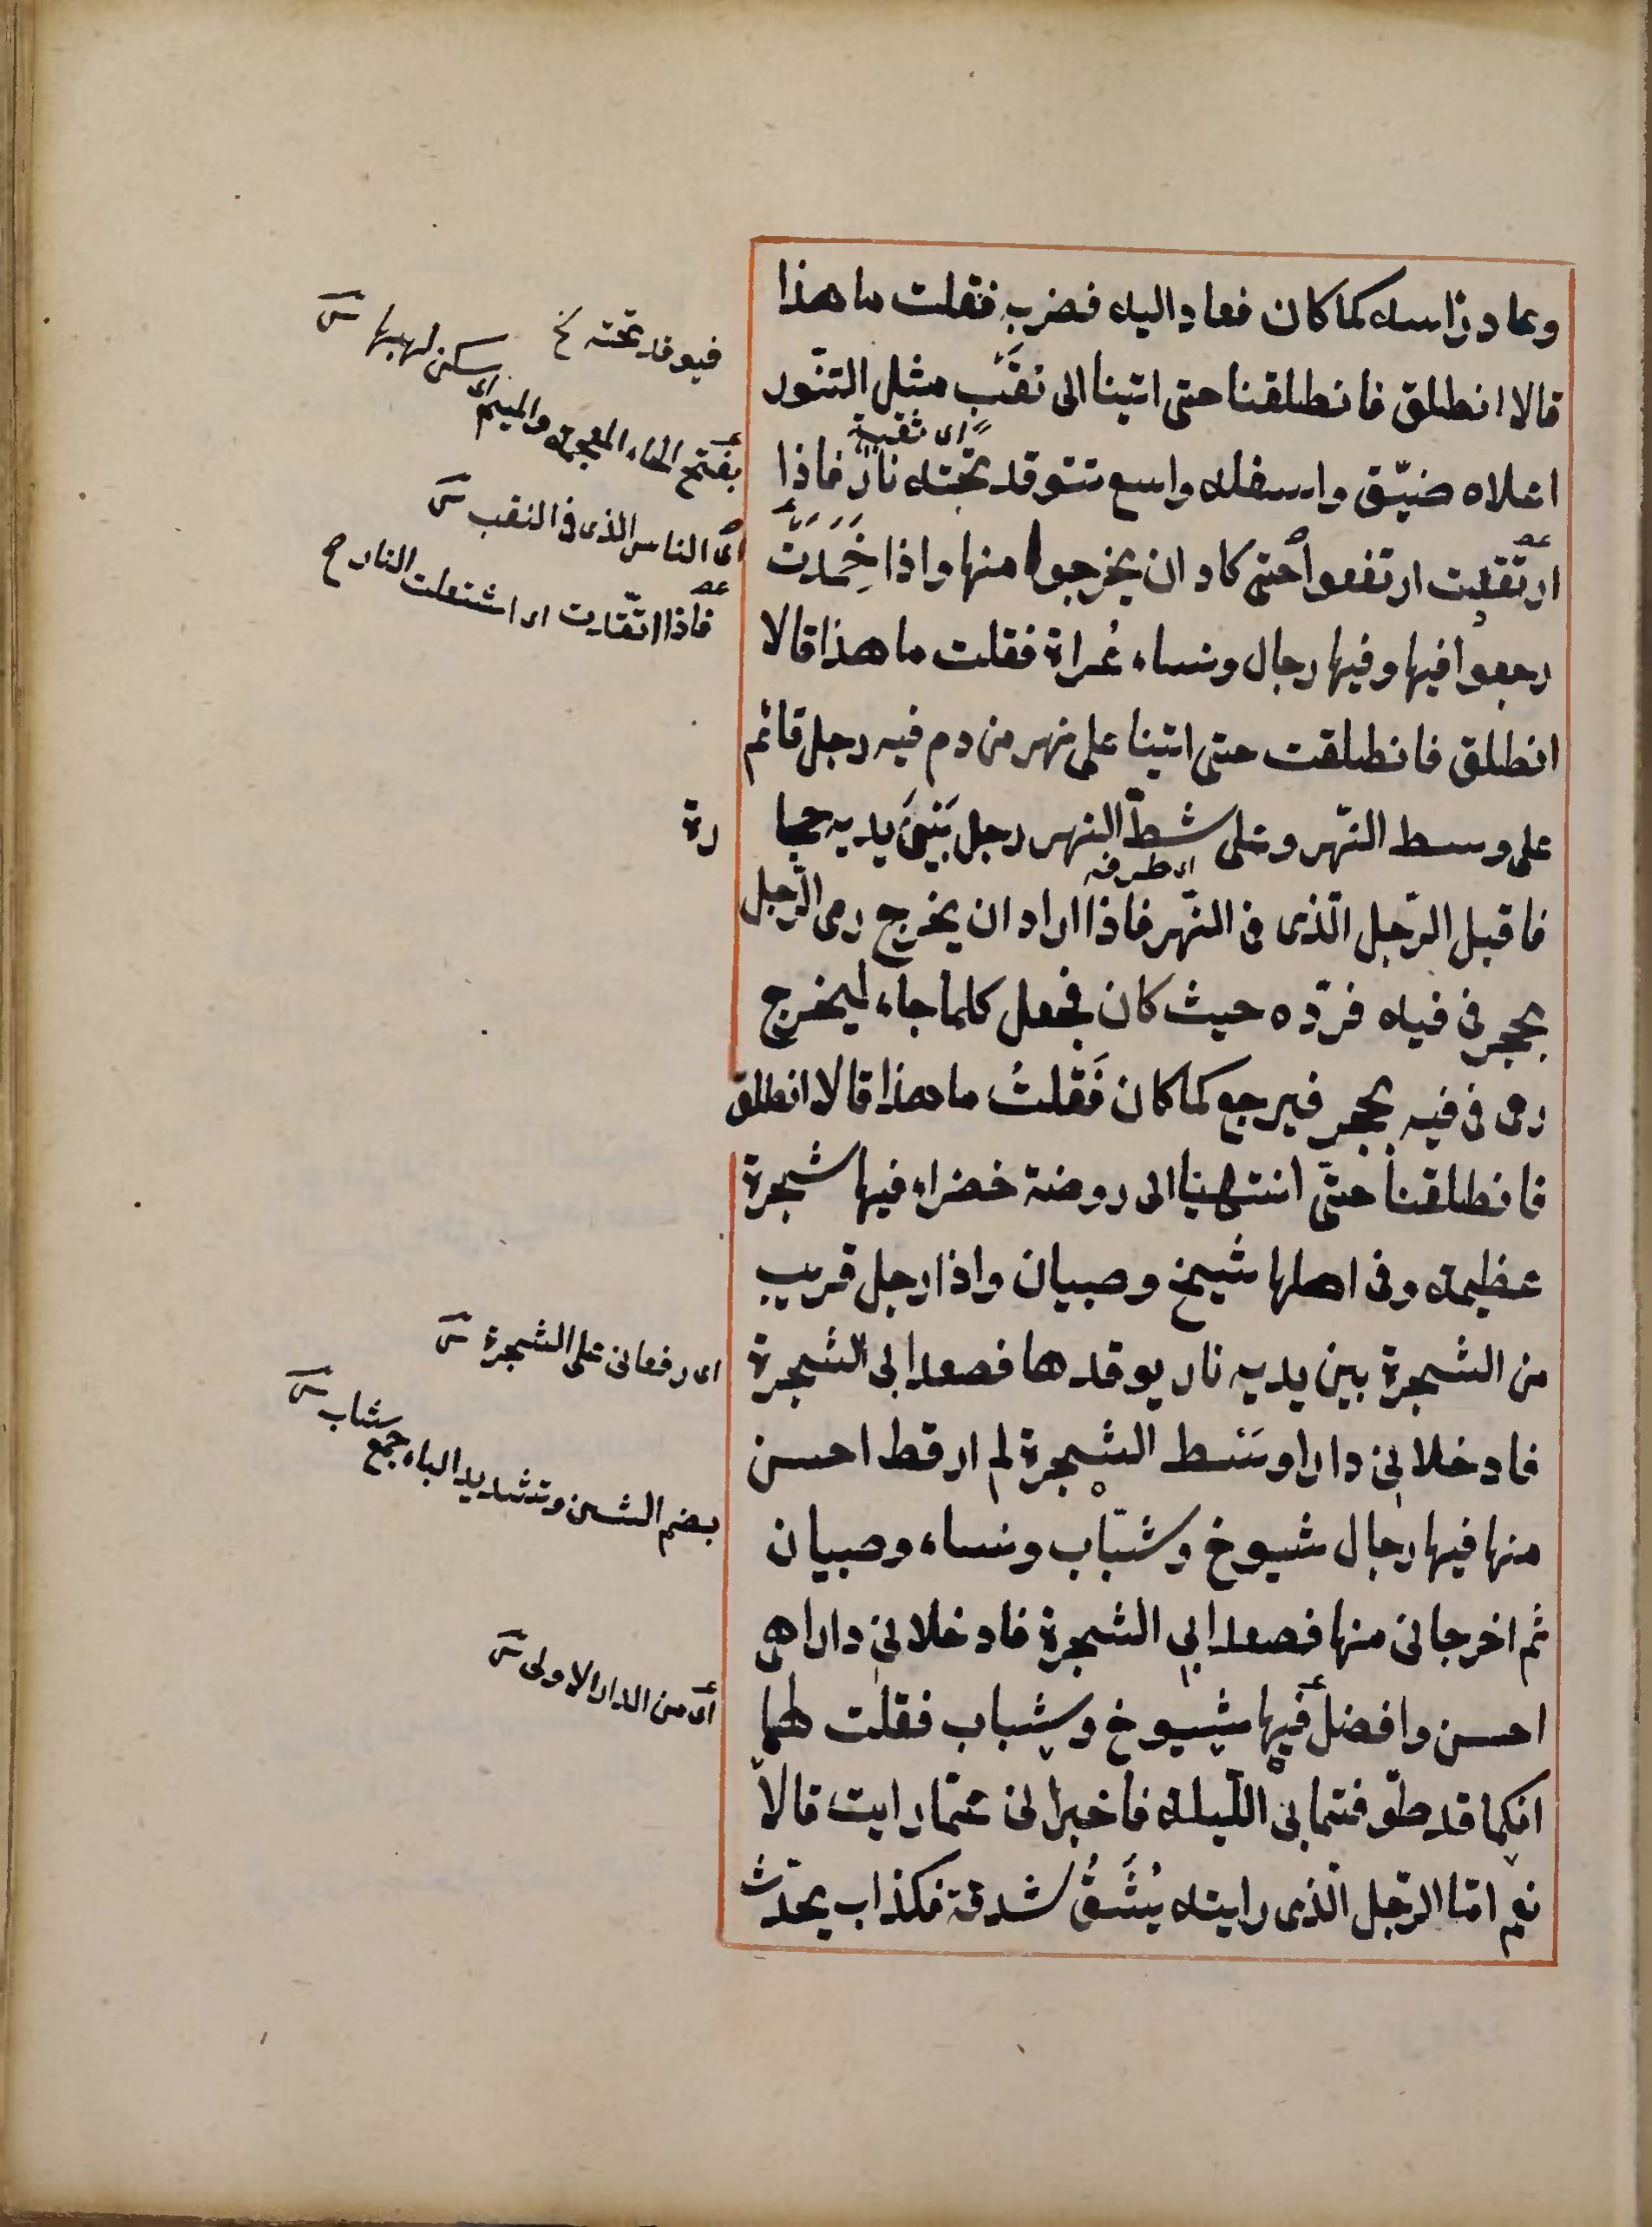 وعاد راسه كما كان فعاد اليه فضرب فقلت ما هذا
قالا انطلق فانطلقنا حتى اتينا الى نقب مثل التنّور
اى ثقبة
اعلاه ضيّق واسفله واسع تتوقد تحته نار فاذا
ارتفعت ارتفعوا حتى كاد ان يخرجوا منها واذا خَمَدَتْ
رجعوا فيها وفيها رجال ونساء عُراة فقلت ما هذا قالا
انطلق فانطلقت حتى اتينا على نهر من دم فيه رجل قائم
على وسط النّهر وعلى شطّ النهر رجل بَيْنَ يديه حجا
رة
اى طرفه
فاقبل الرّجل الّذى فى النّهر فاذا اراد ان يخرج رمى الرّجل
بحجر فى فيه فردّه حيث كان فجعل كلما جاء ليخرج
رمى فى فيه بحجر فيرجع كما كان فَقلتُ ما هذا قالا انطلق
فانطلقنا حتّى انتهينا الى روضة خضراء فيها شجرة
عظيمة وفى اصلها شيخ وصبيان واذا رجل قريب
من الشجرة بين يديه نار يوقدها فصعدا بى الشجرة
فادخلانى دارا وسَط الشجرة لم ار قط احسن
منها فيها رجال شيوخ وشبّاب ونساء وصبيان
ثم اخرجانى منها فصعدا بى الشجرة فادخلانى دارا هى
احسن وافضل فيها شيوخ وشباب فقلت لهما
انكما قد طوّفتما بى اللّيلة فاخبرانى عمّا رايت قالا
نعم امّا الرّجل الّذى رايته يُشَقُّ شدقه فكذاب يحدّث
فيوقد تحته خ
بفتح الخاء المعجمة والميم اى سكن لهبها
اى الناس الذى فى النقب
فاذا اتّقدت اى اشتعلت النار ح
اى رفعانى على الشجرة
بضم الشين وتشديد الباء جمع شاب
اى من الدار الاولى